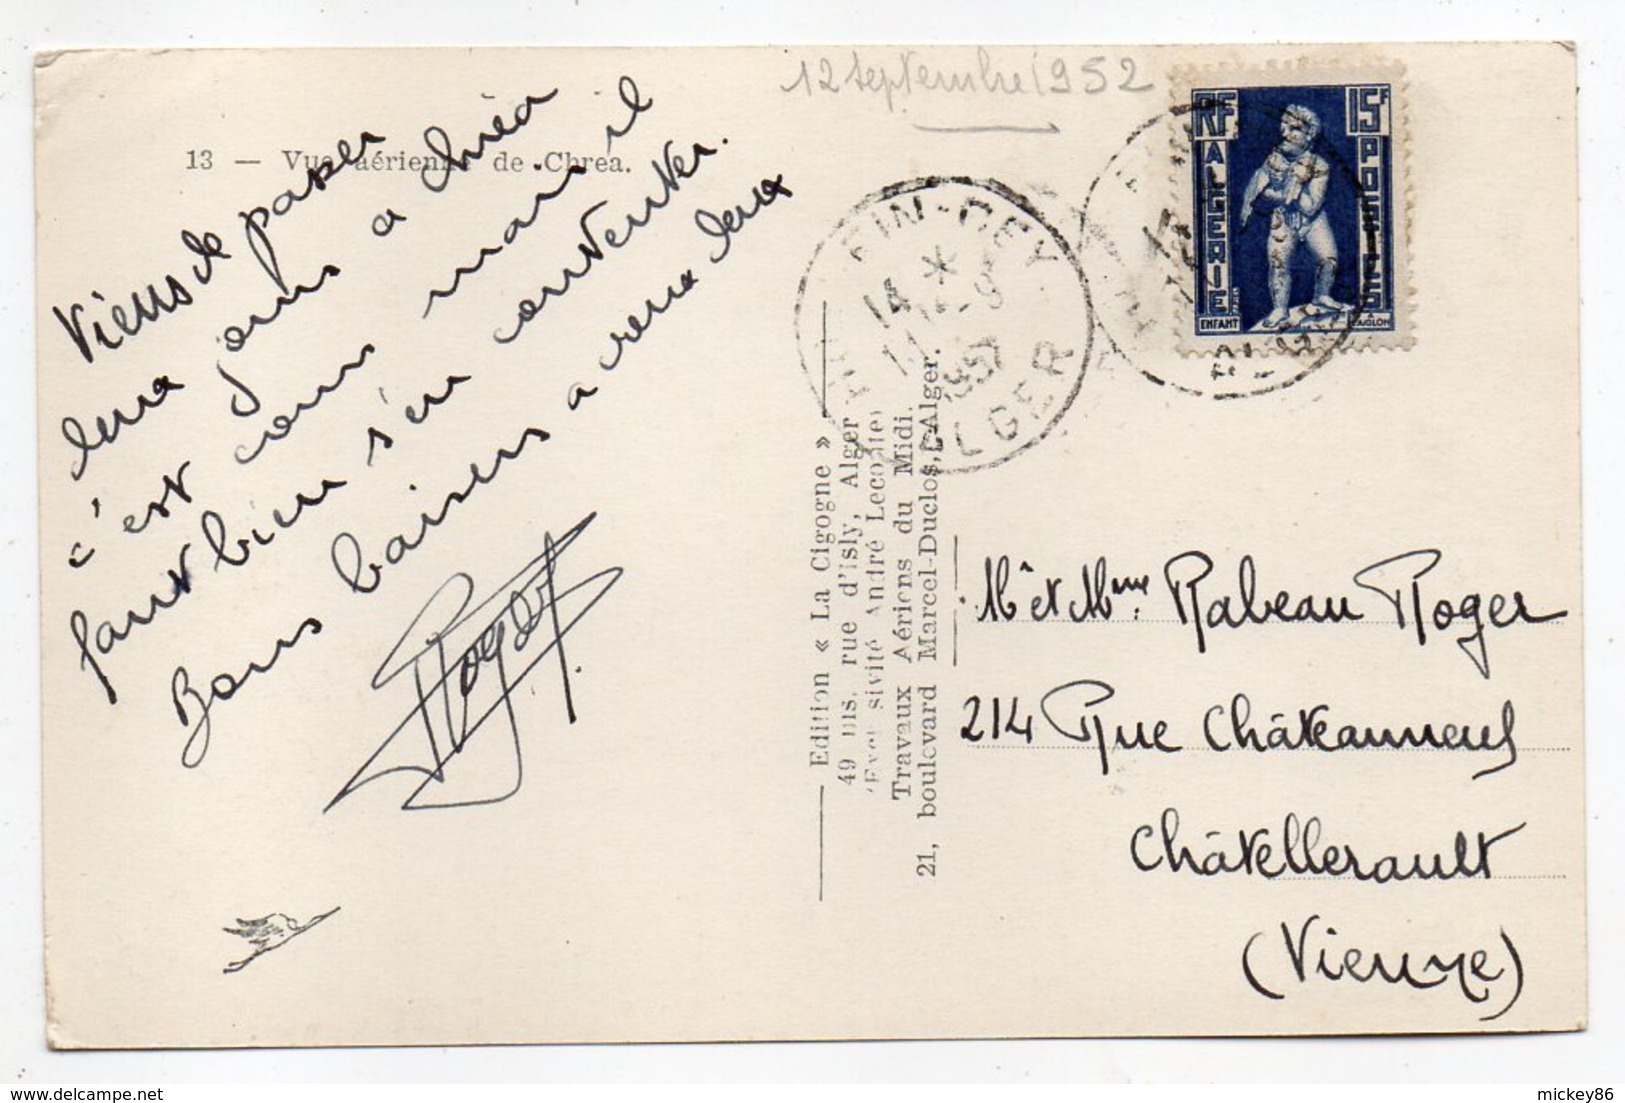 12 septembre 1952
13 — Vue aérienne de Chrea.
Viens de passer
deux jours a chréa
c'est court mais il
faut bien s'en contenter.
Bons baisers a vous deux
Roger
Edition « La Cigogne »
49 bis, rue d'isly, Alger
(Exclusivité André Leconte)
Travaux Aériens du Midi.
21, boulevard Marcel-Duclos, Alger.
HUSSEIN-DEY
14 *
1952
ALGER
RF
15F
ALGERIE
POSTES
ENFANT A L'AIGLON
Mr et Mme Rabeau Roger
214 Rue Châteauneuf
Châtellerault
(Vienne)
mickey86